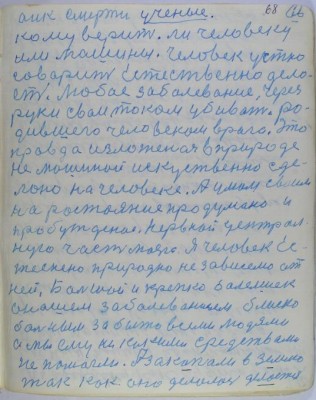 аик смерти ученые. 68
кому верит. ли человеку
или машины. Человек устно
говарит естественно дело-
ст. Любое заболевание. Через
руки своим током убиват. ро-
дившего человеком врага. Это
правда изложеная в природе
не машиной искуственно сде-
лоно на человеке. А умом своим
на ростояние продумано и
пробужденое. Нервной централ
ную часть моего. Я человек Ес-
тественно природно не зависемо от
ней. Больной и крепко болеющем
заболеванием близко
больным забыто всеми людями
а мы ему ни какими средствами
не помогли. А закопали в землю
так как оно делолось